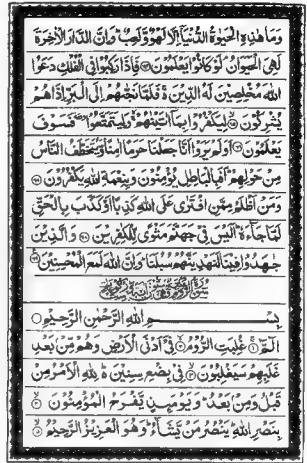 وَمَا هٰذِهِ الْحَيٰوةُ الدُّنْيَآ اِلَّا لَهْوٌ وَّلَعِبٌ ؕ وَاِنَّ الدَّارَ الْاٰخِرَةَ
لَهِىَ الْحَيَوَانُ لَوْ كَانُوْا يَعْلَمُوْنَ ۞ فَاِذَا رَكِبُوْا فِى الْفُلْكِ دَعَوُا
اللّٰهَ مُخْلِصِيْنَ لَهُ الدِّيْنَ ۚ فَلَمَّا نَجّٰىهُمْ اِلَى الْبَرِّ اِذَا هُمْ
يُشْرِكُوْنَ ۞ لِيَكْفُرُوْا بِمَآ اٰتَيْنٰهُمْ ۚ وَلِيَتَمَتَّعُوْا ۥ فَسَوْفَ
يَعْلَمُوْنَ ۞ اَوَلَمْ يَرَوْا اَنَّا جَعَلْنَا حَرَمًا اٰمِنًا وَّيُتَخَطَّفُ النَّاسُ
مِنْ حَوْلِهِمْ ؕ اَفَبِالْبَاطِلِ يُؤْمِنُوْنَ وَبِنِعْمَةِ اللّٰهِ يَكْفُرُوْنَ ۞
وَمَنْ اَظْلَمُ مِمَّنِ افْتَرٰى عَلَى اللّٰهِ كَذِبًا اَوْ كَذَّبَ بِالْحَقِّ
لَمَّا جَآءَهٗ ؕ اَلَيْسَ فِىْ جَهَنَّمَ مَثْوًى لِّلْكٰفِرِيْنَ ۞ وَالَّذِيْنَ
جٰهَدُوْا فِيْنَا لَنَهْدِيَنَّهُمْ سُبُلَنَا ؕ وَاِنَّ اللّٰهَ لَمَعَ الْمُحْسِنِيْنَ ۞
بِسْمِ اللّٰهِ الرَّحْمٰنِ الرَّحِيْمِ
الٓمّٓ ۞ غُلِبَتِ الرُّوْمُ ۞ فِىْٓ اَدْنَى الْاَرْضِ وَهُمْ مِّنْۢ بَعْدِ
غَلَبِهِمْ سَيَغْلِبُوْنَ ۞ فِىْ بِضْعِ سِنِيْنَ ؕ لِلّٰهِ الْاَمْرُ مِنْ
قَبْلُ وَمِنْۢ بَعْدُ ؕ وَيَوْمَئِذٍ يَّفْرَحُ الْمُؤْمِنُوْنَ ۞
بِنَصْرِ اللّٰهِ ؕ يَنْصُرُ مَنْ يَّشَآءُ ؕ وَهُوَ الْعَزِيْزُ الرَّحِيْمُ ۞